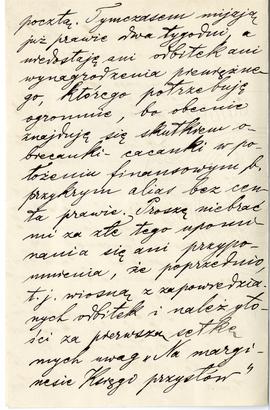 pocztą. Tymczasem mijają
już prawie dwa tygodni, a
niedostaję ani odbitek ani
wynagrodzenia pieniężne-
go, którego potrzebuję
ogromnie, bo obecnie
znajduję się skutkiem o-
biecanki-cacanki w po-
łożeniu finansowym b.
przykrym alias bez cen-
ta prawie. Proszę niebrać
mi za złe tego upomi-
nania się ani przypo-
mnienia, że poprzednio,
t. j. wiosną z zapowiedzia-
nych odbitek i należyto-
ści za pierwszą setkę
mych uwag „Na margi-
nesie Księgi przysłów"